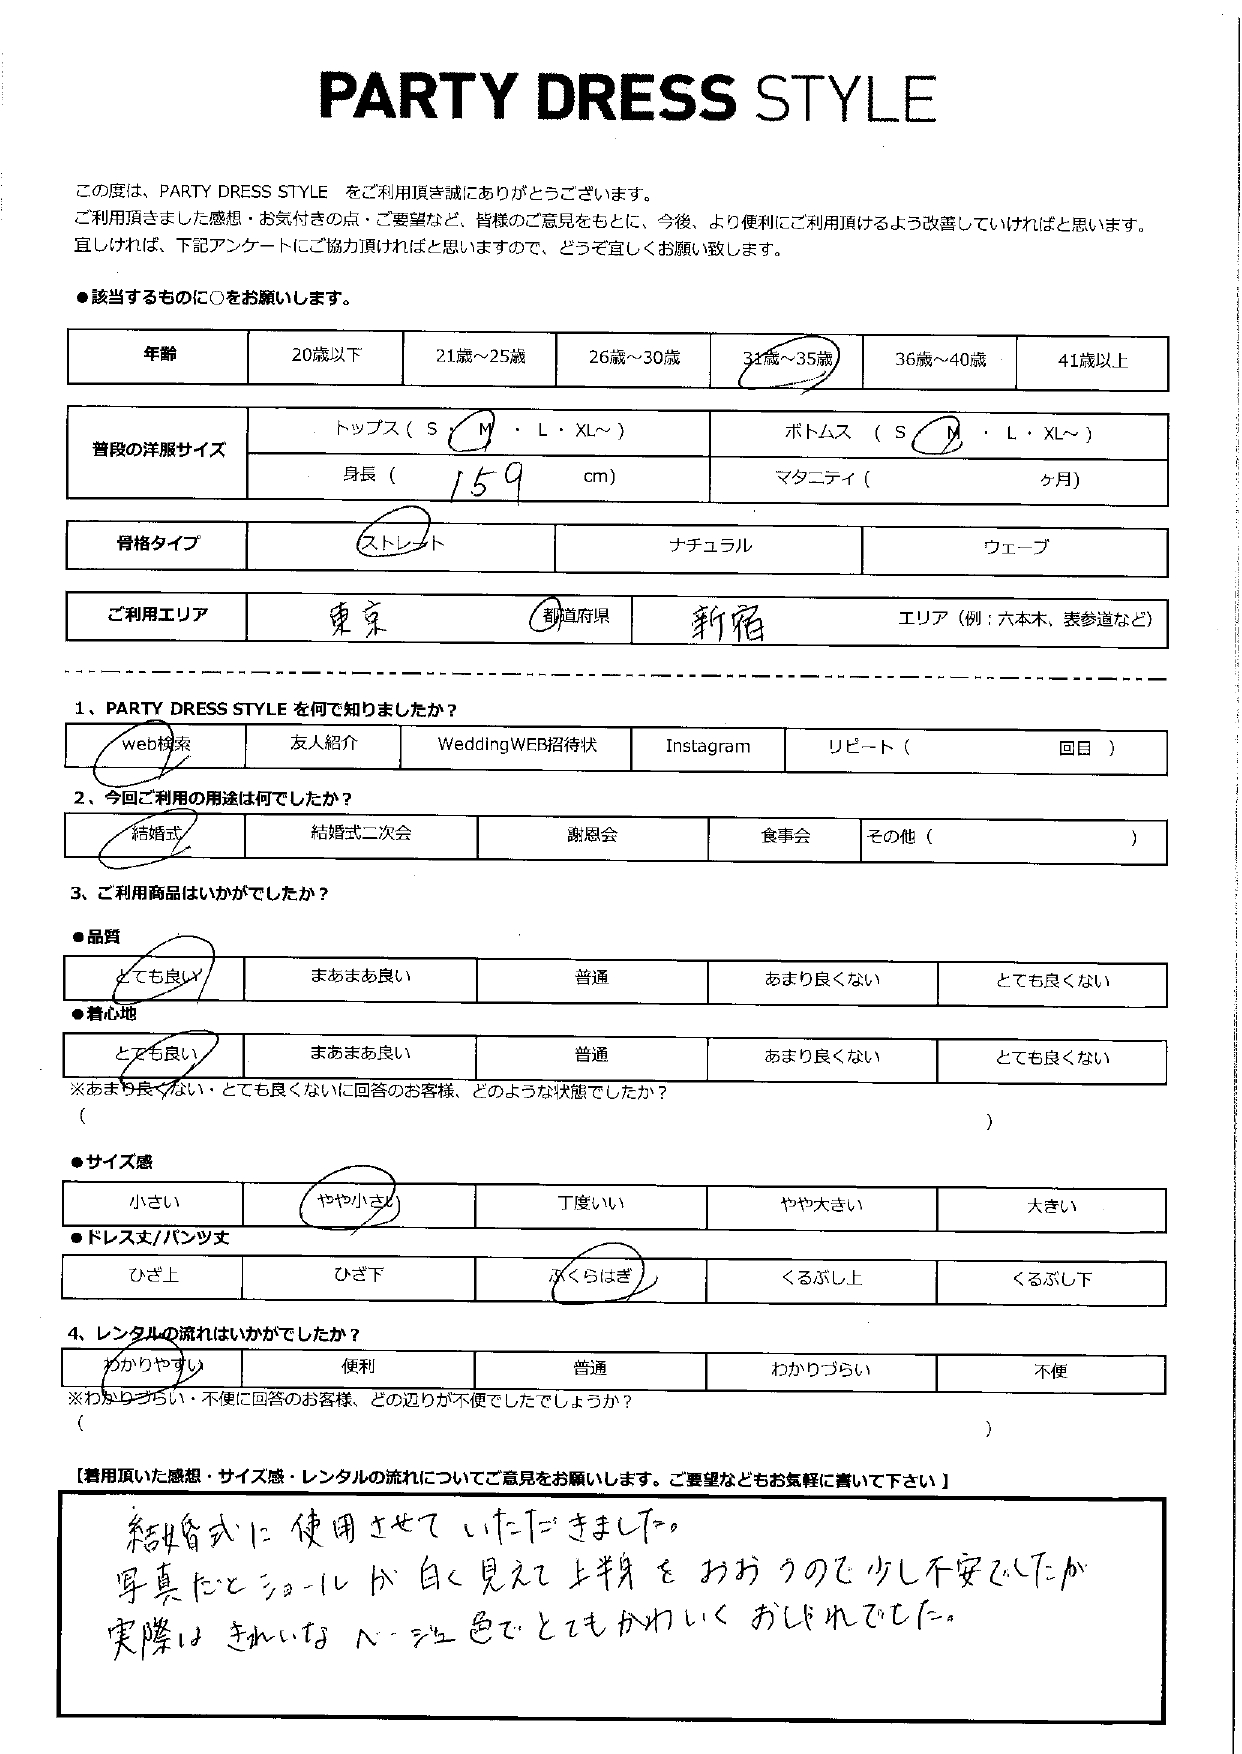 PARTY DRESS STYLE
この度は、PARTY DRESS STYLE をご利用頂き誠にありがとうございます。
ご利用頂きました感想・お気付きの点・ご要望など、皆様のご意見をもとに、今後、より便利にご利用頂けるよう改善していければと思います。
宜しければ、下記アンケートにご協力頂ければと思いますので、どうぞ宜しくお願い致します。
●該当するものに○をお願いします。
年齢 20歳以下 21歳～25歳 26歳～30歳 31歳～35歳 36歳～40歳 41歳以上
普段の洋服サイズ トップス ( S ・ M ・ L ・ XL～ ) ボトムス ( S ・ M ・ L ・ XL～ )
身長 ( 159 cm) マタニティ ( ヶ月)
骨格タイプ ストレート ナチュラル ウェーブ
ご利用エリア 東京 都道府県 新宿 エリア（例：六本木、表参道など）
1、PARTY DRESS STYLE を何で知りましたか？
web検索 友人紹介 WeddingWEB招待状 Instagram リピート ( 回目 )
2、今回ご利用の用途は何でしたか？
結婚式 結婚式二次会 謝恩会 食事会 その他 ( )
3、ご利用商品はいかがでしたか？
●品質
とても良い まあまあ良い 普通 あまり良くない とても良くない
●着心地
とても良い まあまあ良い 普通 あまり良くない とても良くない
※あまり良くない・とても良くないに回答のお客様、どのような状態でしたか？
( )
●サイズ感
小さい やや小さい 丁度いい やや大きい 大きい
●ドレス丈/パンツ丈
ひざ上 ひざ下 ふくらはぎ くるぶし上 くるぶし下
4、レンタルの流れはいかがでしたか？
わかりやすい 便利 普通 わかりづらい 不便
※わかりづらい・不便に回答のお客様、どの辺りが不便でしたでしょうか？
( )
【着用頂いた感想・サイズ感・レンタルの流れについてご意見をお願いします。ご要望などもお気軽に書いて下さい】
結婚式に使用させていただきました。
写真だとショールが白く見えて上半身をおおうので少し不安でしたが
実際はきれいなベージュ色でとてもかわいくおしゃれでした。